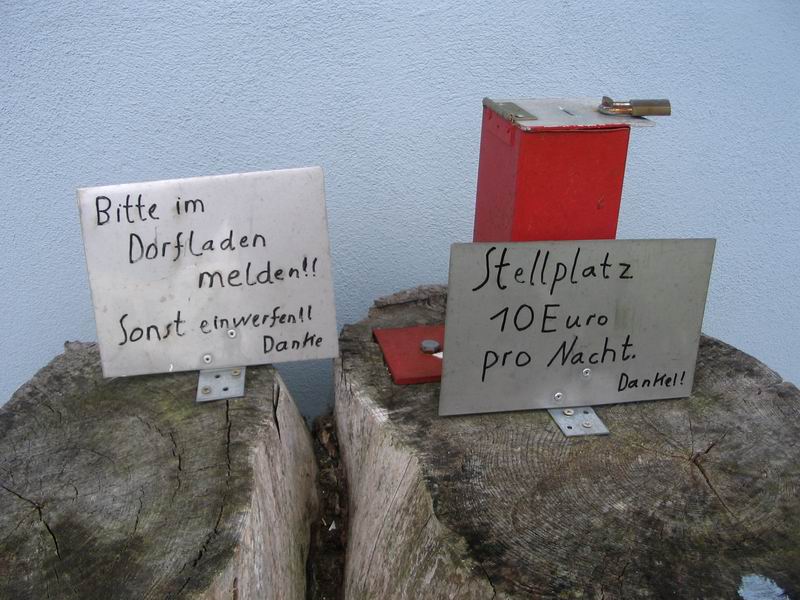 Bitte im
Dorfladen
melden!!
Sonst einwerfen!!
Danke
Stellplatz
10 Euro
pro Nacht.
Danke!!